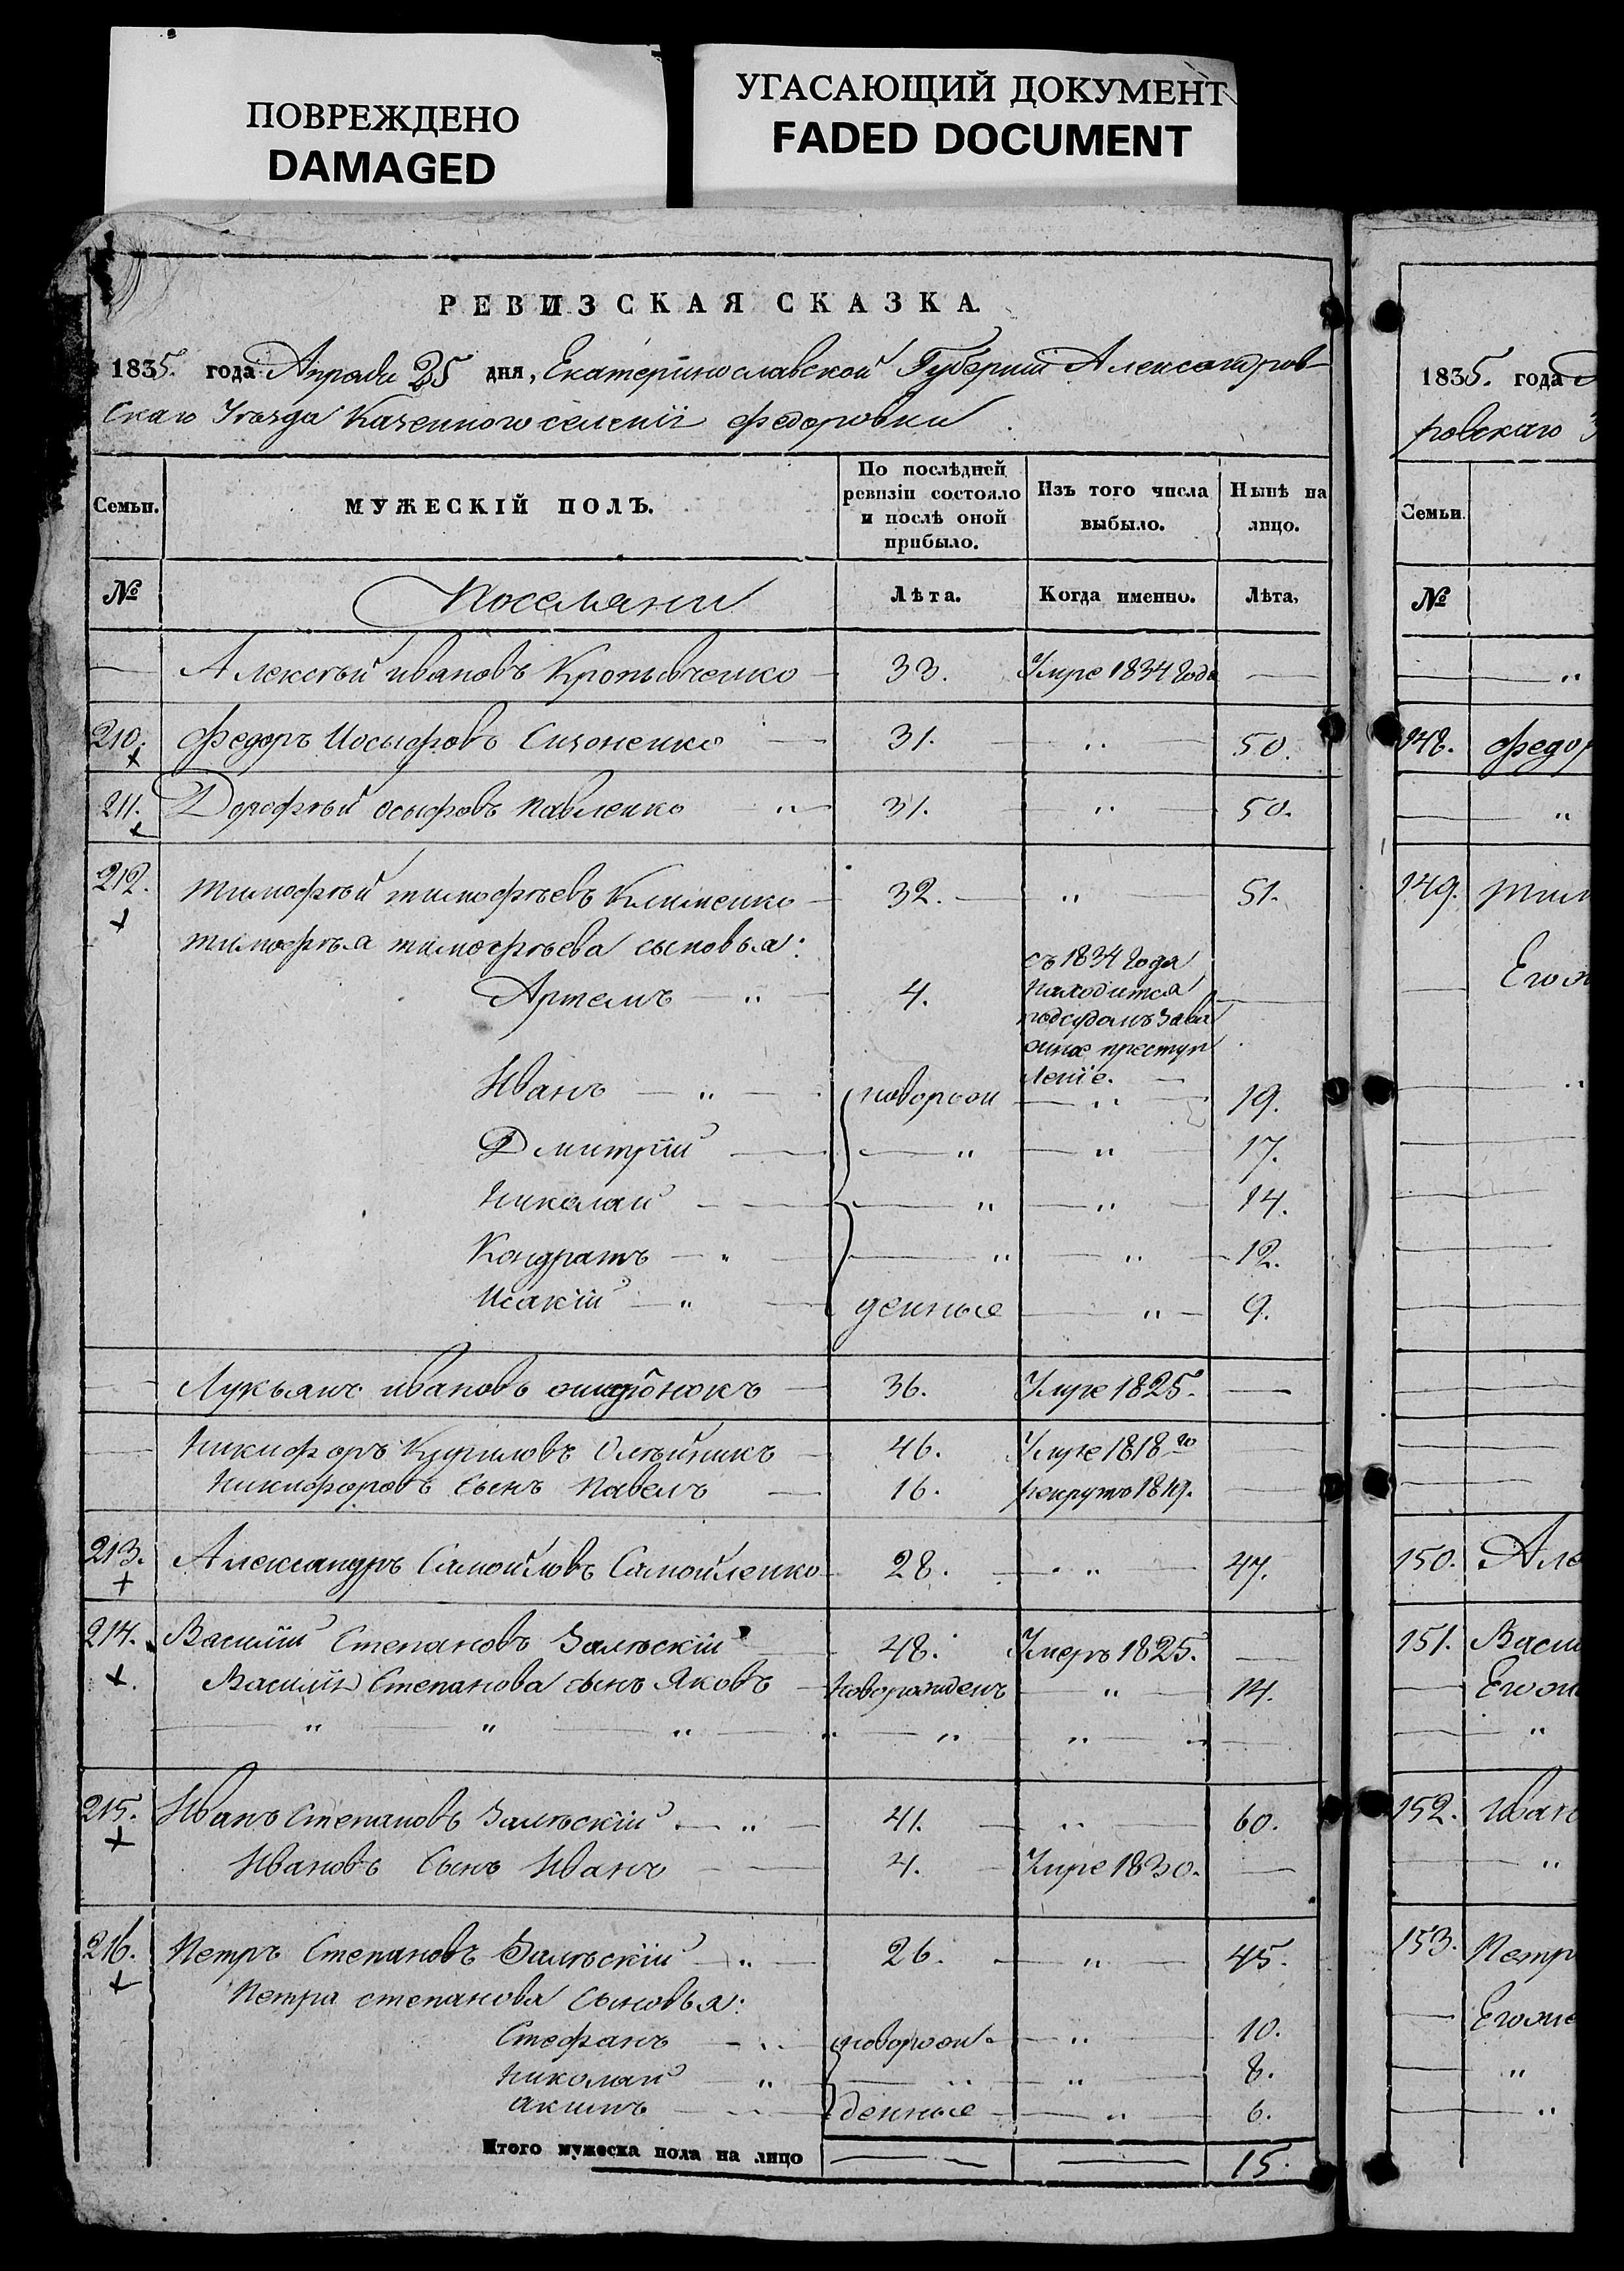 ПОВРЕЖДЕНО
DAMAGED
УГАСАЮЩИЙ ДОКУМЕНТ
FADED DOCUMENT
РЕВИЗСКАЯ СКАЗКА.
1835. года Апреля 25 дня, Екатеринославской Губернии Александров-
скаго Уезда Казенного селенія Федоровки
Семьи. МУЖЕСКІЙ ПОЛЪ. По послѣдней ревизіи состояло и послѣ оной прибыло. Изъ того числа выбыло. Нынѣ на лицо.
№ Поселяни Лѣта. Когда именно. Лѣта,
Алексѣй ивановъ 33. Умре 1834 года
210. Федоръ Иосыфовъ 31. " 50.
211. Дорофѣй осыфовъ павленко " 31. " 50.
212. тимофѣй тимофѣевъ Клименко 32. " 51.
тимофѣя тимофѣева сыновья:
Артемъ " 4. съ 1834 года
находится
подсудомъ
преступ
леніе.
Иванъ " новорож " 19.
Дмитрій " " 17.
николай " " 14.
Кондратъ " " " 12.
Исакій " денные " 9.
Лукьянъ ивановъ 36. Умре 1825.
никифоръ Куриловъ Олѣйникъ 46. Умре 1818 го
никифоровъ Сынъ павелъ 16. рекрутъ 1819.
213. Александръ Самойловъ Самойленко 28. " 47.
214. Василій Степановъ Залѣскій 48. Умеръ 1825.
Василія Степанова сынъ Яковъ новорожденъ " 14.
" " " " " "
215. Иванъ Степановъ Залѣскій " 41. " 60.
Ивановъ Сынъ Иванъ 4. Умре 1830.
216. Петръ Степановъ Залѣскій " 26. " 45.
Петра степанова Сыновья:
Стефанъ " новорож " 10.
николай " " " 8.
акимъ " денные " 6.
Итого мужеска пола на лицо 15.
1835. года
ровскаго
Семьи.
№
"
148. Федор
"
149. тим
Его
"
150. Але
151. Васи
Его
"
152. Иван
"
153. Петр
Его
"
"